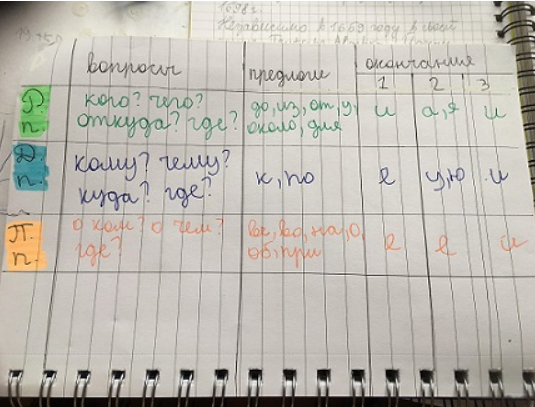 1698г.
Независимо в 1669 году в своей
вопросы предлоги окончания
1 2 3
Р. п. кого? чего? до, из, от, у, и а, я и
откуда? где? около, для
Д. п. кому? чему? к, по е у, ю и
куда? где?
П. п. о ком? о чём? ве, во, на, о, е е и
где? об, при